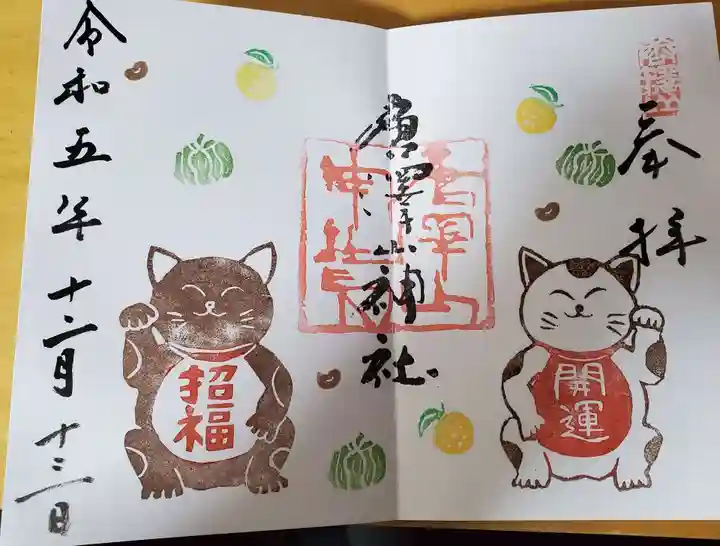 奉拝
開運
唐澤山神社
招福
令和五年十二月十三日